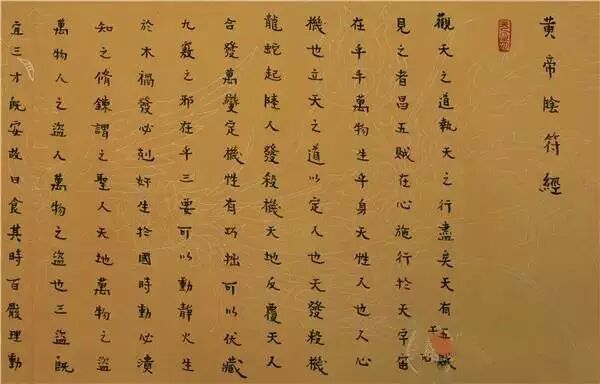 黄帝陰符經
觀天之道執天之行盡矣天有五賊
見之者昌五賊在心施行於天宇宙
在乎手萬物生乎身天性人也人心
機也立天之道以定人也天發殺機
龍蛇起陸人發殺機天地反覆天人
合發萬變定機性有巧拙可以伏藏
九竅之邪在乎三要可以動靜火生
於木禍發必剋奸生於國時動必潰
知之脩鍊謂之聖人天地萬物之盜
萬物人之盜人萬物之盜也三盜既
宜三才既安故曰食其時百骸理動